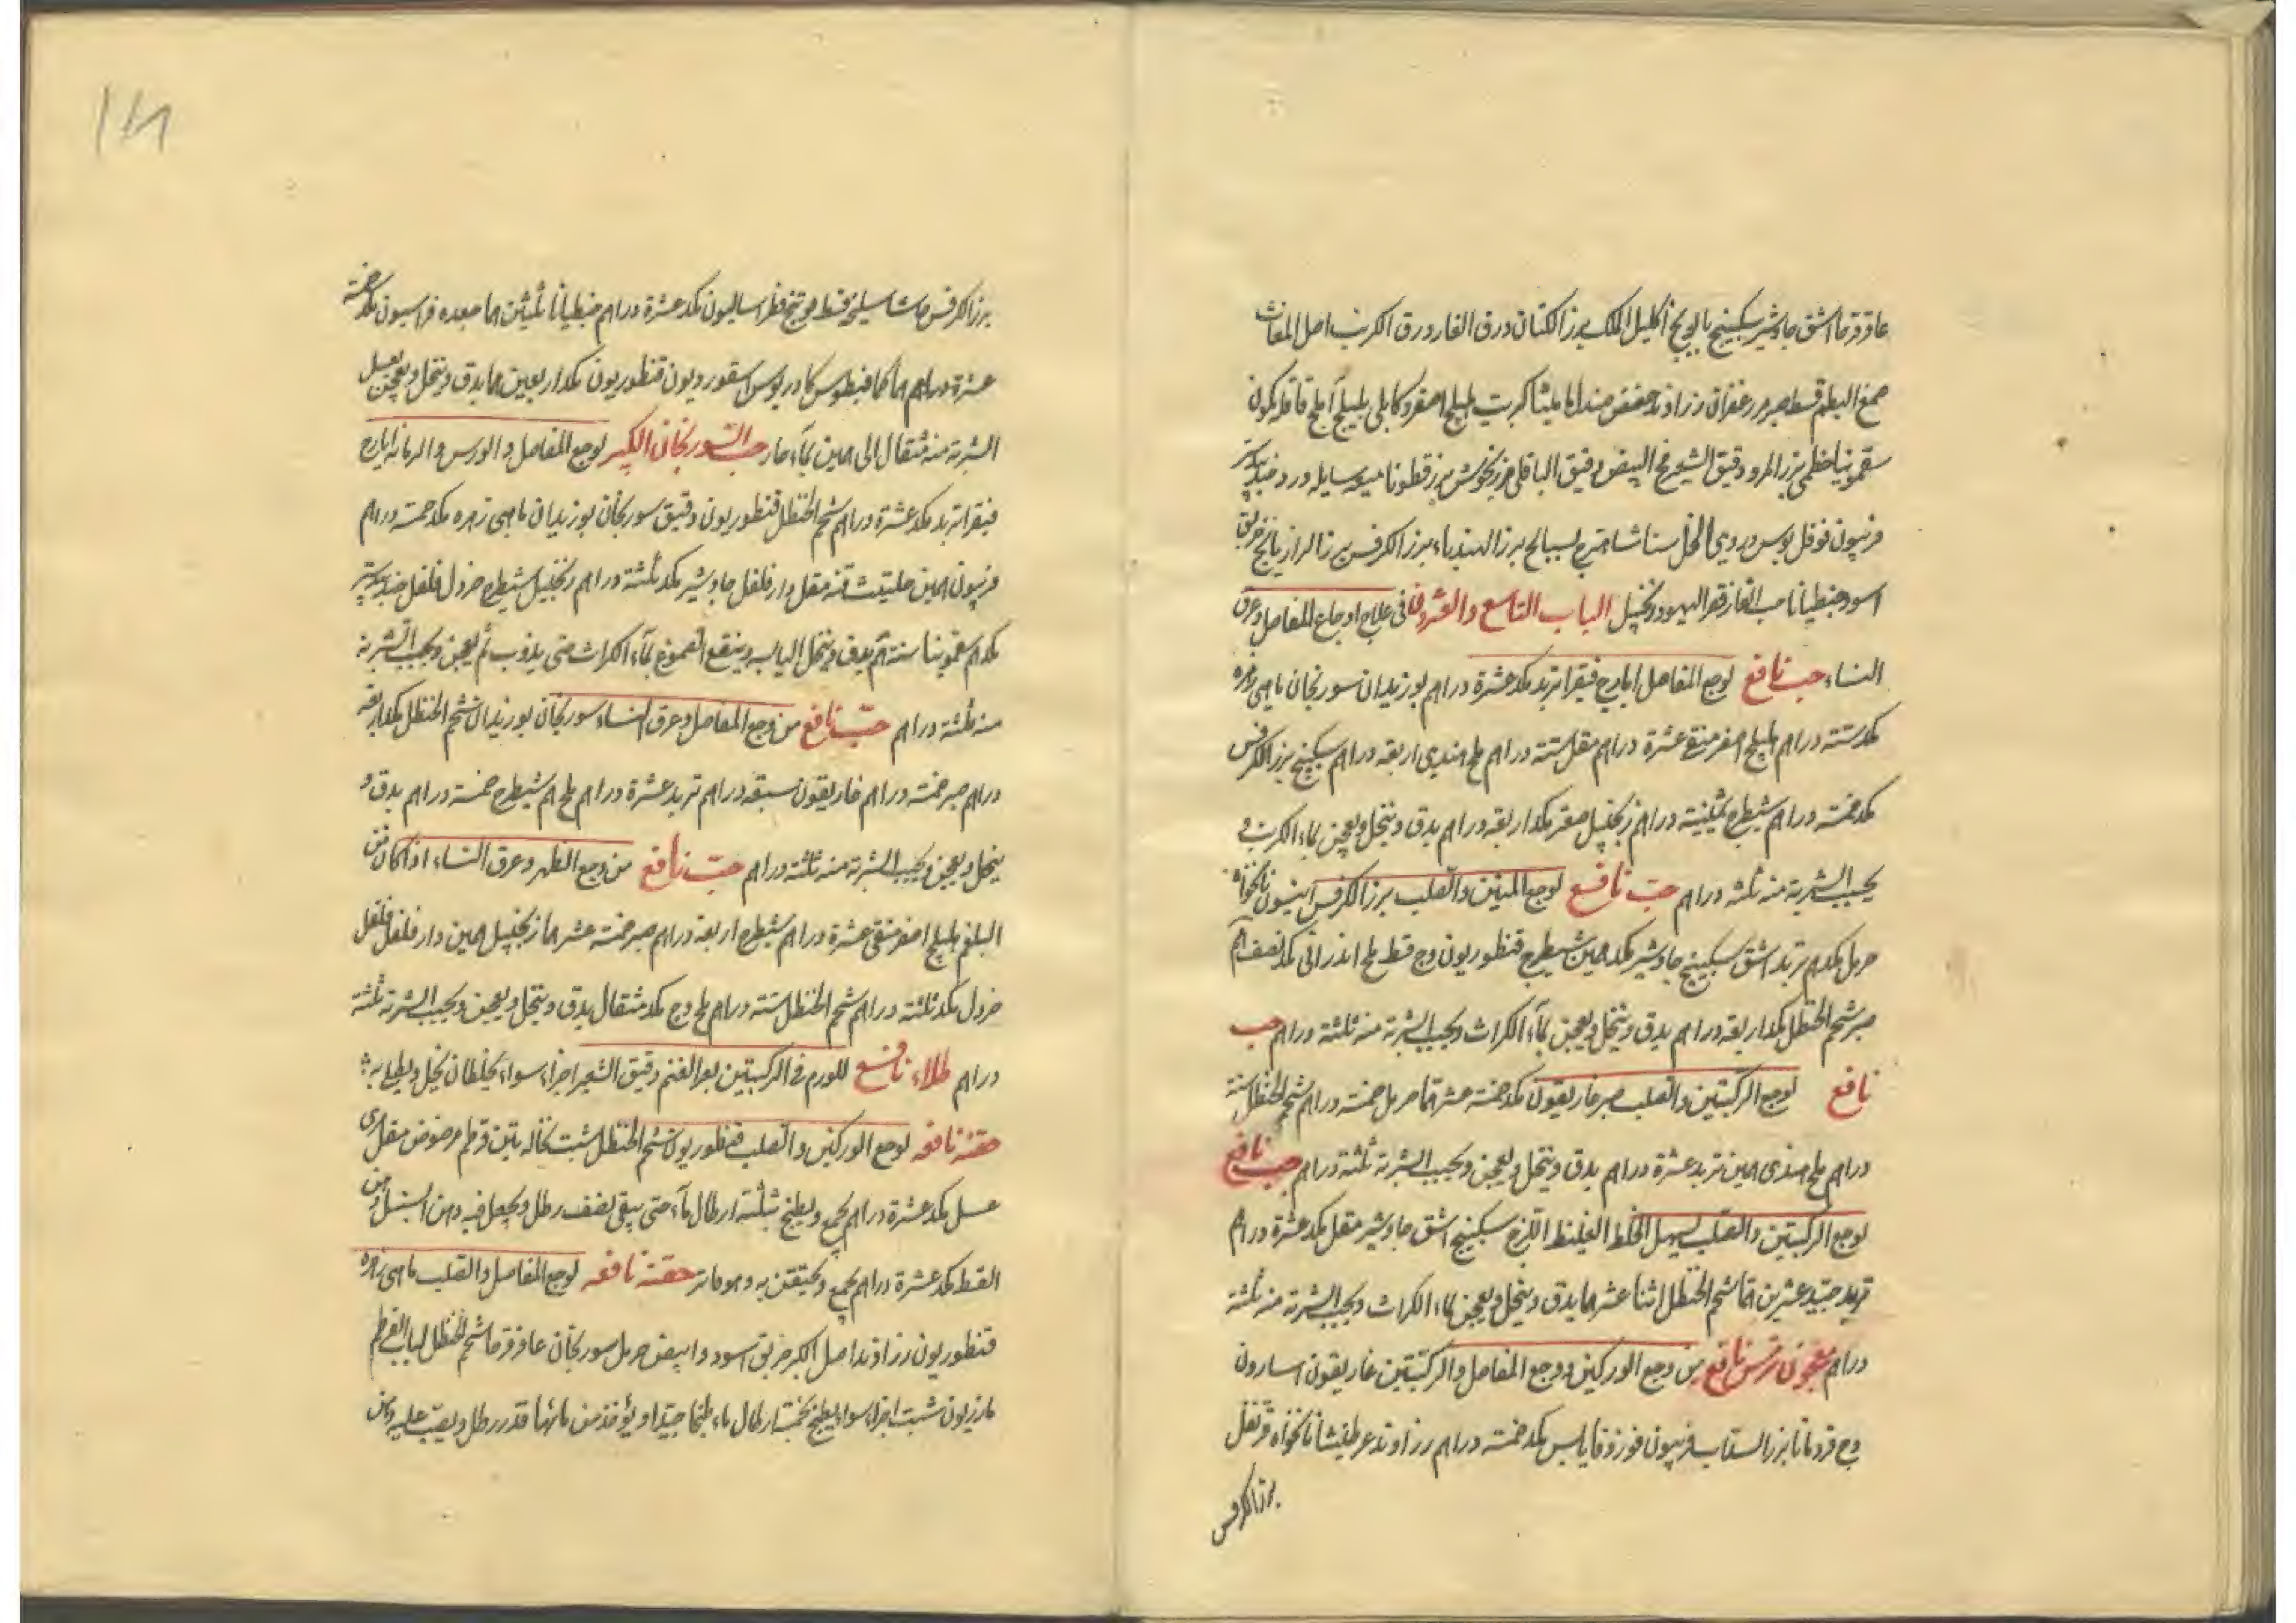 عاقرقرحا اشق جاوشير سكبينج بابونج اكليل الملك بزر الكتان ورق الغار ورق الكرنب اصل المغاث
صمغ البطم قسط صبر مر زعفران زراوند حضض صندل ماميثا كبريت هليلج اصفر وكابلى بليلج آملج قاقله كمون
سقمونيا خطمى بزر المرو دقيق الشعير مح البيض دقيق الباقلى مرزنجوش بزر قطونا ميعه سايله ورد جندبيدستر
فربيون فوفل دردى الخل بسبايج بزر الهندباء بزر الكرفس بزر الرازيانج خربق
اسود جنطيانا حب الغار قفر اليهود زنجبيل الباب التاسع والعشرون فى علاج اوجاع المفاصل وعرق
النساء حب نافع لوجع المفاصل ايارج فيقرا تربد مكد عشرة دراهم بوزيدان سورنجان ماهى زهره
مكد ستة دراهم هليلج اصفر منقى عشرة دراهم مقل ستة دراهم ملح هندى اربعة دراهم سكبينج بزر الكرفس
مكد خمسة دراهم شيطرج ثمينية دراهم زنجبيل صعتر مكد اربعة دراهم يدق وينخل ويعجن بماء الكرنب و
يحبب الشربة منه ثلثة دراهم حب نافع لوجع المتنين والصلب بزر الكرفس انيسون نانخواه
حرمل مكدهم تربد اشق سكبينج جاوشير مكد همين شيطرج قنطوريون وج قسط ملح اندرانى مكد نصف هم
صبر شحم الحنظل مكد اربعة دراهم يدق وينخل ويعجن بماء الكراث ويحبب الشربة منه ثلثة دراهم حب
نافع لوجع الركبتين والصلب صبر غاريقون مكد خمسة عشرهما حرمل خمسة دراهم شحم الحنظل ستة
دراهم ملح هندى همين تربد عشرة دراهم يدق وينخل ويعجن ويحبب الشربة ثلثة دراهم حب نافع
لوجع الركبتين والصلب يسهل الخلط الغليظ اللزج سكبينج اشق جاوشير مقل مكد عشرة دراهم
تربد جيد عشرين هما شحم الحنظل اثنا عشرهما يدق وينخل ويعجن بماء الكراث ويحبب الشربة منه ثلثة
دراهم معجون هرمس نافع من وجع الوركين ووجع المفاصل والركبتين غاريقون اسارون
وج قردمانا بزر السداب فربيون مكد خمسة دراهم زراوند نانخواه قرنفل
بزر الكرفس
بزر الكرفس سليخه قسط فوتنج فطراساليون مكد عشرة دراهم جنطيانا ثلثين هما جعده فراسيون مكد خمسة
عشرة دراهم هما كمافيطوس كمادريوس اسقورديون قنطوريون مكد اربعين هما يدق وينخل ويعجن بعسل
الشربة منه مثقال الى همين بماء حار حب السورنجان الكبير لوجع المفاصل والورس والزمانه ايارج
فيقرا تربد مكد عشرة دراهم شحم الحنظل قنطوريون دقيق سورنجان بوزيدان ماهى زهره مكد خمسة دراهم
فربيون همين حلتيت قنه مقل دارفلفل جاوشير مكد ثلثة دراهم زنجبيل شيطرج خردل فلفل جندبيدستر
مكدهم سقمونيا ستة هم يدق وينخل اليابسه وينقع الصموغ بماء الكراث حتى يذوب ثم يعجن ويحبب الشربة
منه ثلثة دراهم حب نافع من وجع المفاصل وعرق النساء سورنجان بوزيدان شحم الحنظل مكد اربعة
دراهم صبر خمسة دراهم غاريقون سبعة دراهم تربد عشرة دراهم ملح هم شيطرج خمسة دراهم يدق و
ينخل ويعجن ويحبب الشربة منه ثلثة دراهم حب نافع من وجع الظهر وعرق النساء اذا كان من
البلغم هليلج اصفر منقى عشرة دراهم شيطرج اربعة دراهم صبر خمسة عشرهما زنجبيل همين دارفلفل فلفل
خردل مكد ثلثة دراهم شحم الحنظل ستة دراهم ملح وج مكد مثقال يدق وينخل ويعجن ويحبب الشربة ثلثة
دراهم طلاء نافع للورم فى الركبتين بعر الغنم دقيق الشعير اجزاء سواء يخلطان بخل ويطلى به
حقنه نافعه لوجع الوركين والصلب قنطوريون شحم الحنظل شبت نخاله تين قرطم مرضوض مقل
عسل مكد عشرة دراهم يجمع ويطبخ بثلثة ارطال ماء حتى يبقى نصف رطل ويجعل فيه دهن السنبل ودهن
القسط مكد عشرة دراهم يجمع ويحتقن به وهو فاتر حقنه نافعه لوجع المفاصل والصلب ماهى زهره
قنطوريون زراوند اصل الكبر خربق اسود وابيض حرمل سورنجان عاقرقرحا شحم الحنظل لباب القرطم
مازريون شبت اجزاء سواء يطبخ بخمسة ارطال ماء طبخا جيدا ويؤخذ من مائها قدر رطل ويصب عليه دهن